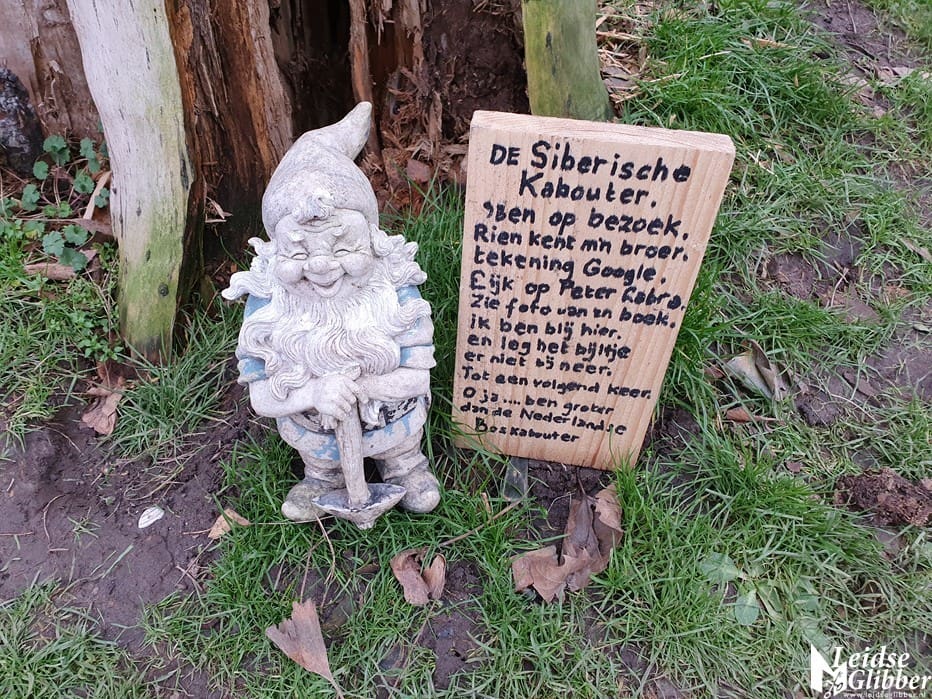 DE Siberische
Kabouter.
'Ben op bezoek,
Rien kent m'n broer.
tekening Google.
Eijk op Peter Cabra.
Zie foto van zn boek.
ik ben blij hier.
en leg het bijltje
er niet bij neer.
Tot een volgend keer.
O ja .... ben groter
dan de Nederlandse
Boskabouter
Leidse
Glibber
www.leidseglibber.nl